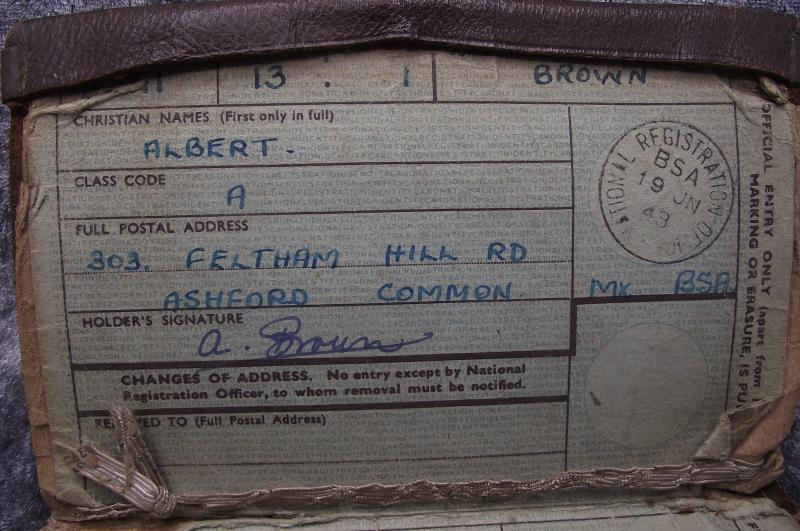 13 : 1 BROWN
CHRISTIAN NAMES (First only in full)
ALBERT.
CLASS CODE
A
FULL POSTAL ADDRESS
303. FELTHAM HILL RD
ASHFORD COMMON. Mx BSA
HOLDER'S SIGNATURE
A. Brown
CHANGES OF ADDRESS. No entry except by National
Registration Officer, to whom removal must be notified.
TO (Full Postal Address)
NATIONAL REGISTRATION
BSA
19 JN
43
OFFICIAL ENTRY ONLY (apart from
MARKING OR ERASURE, IS